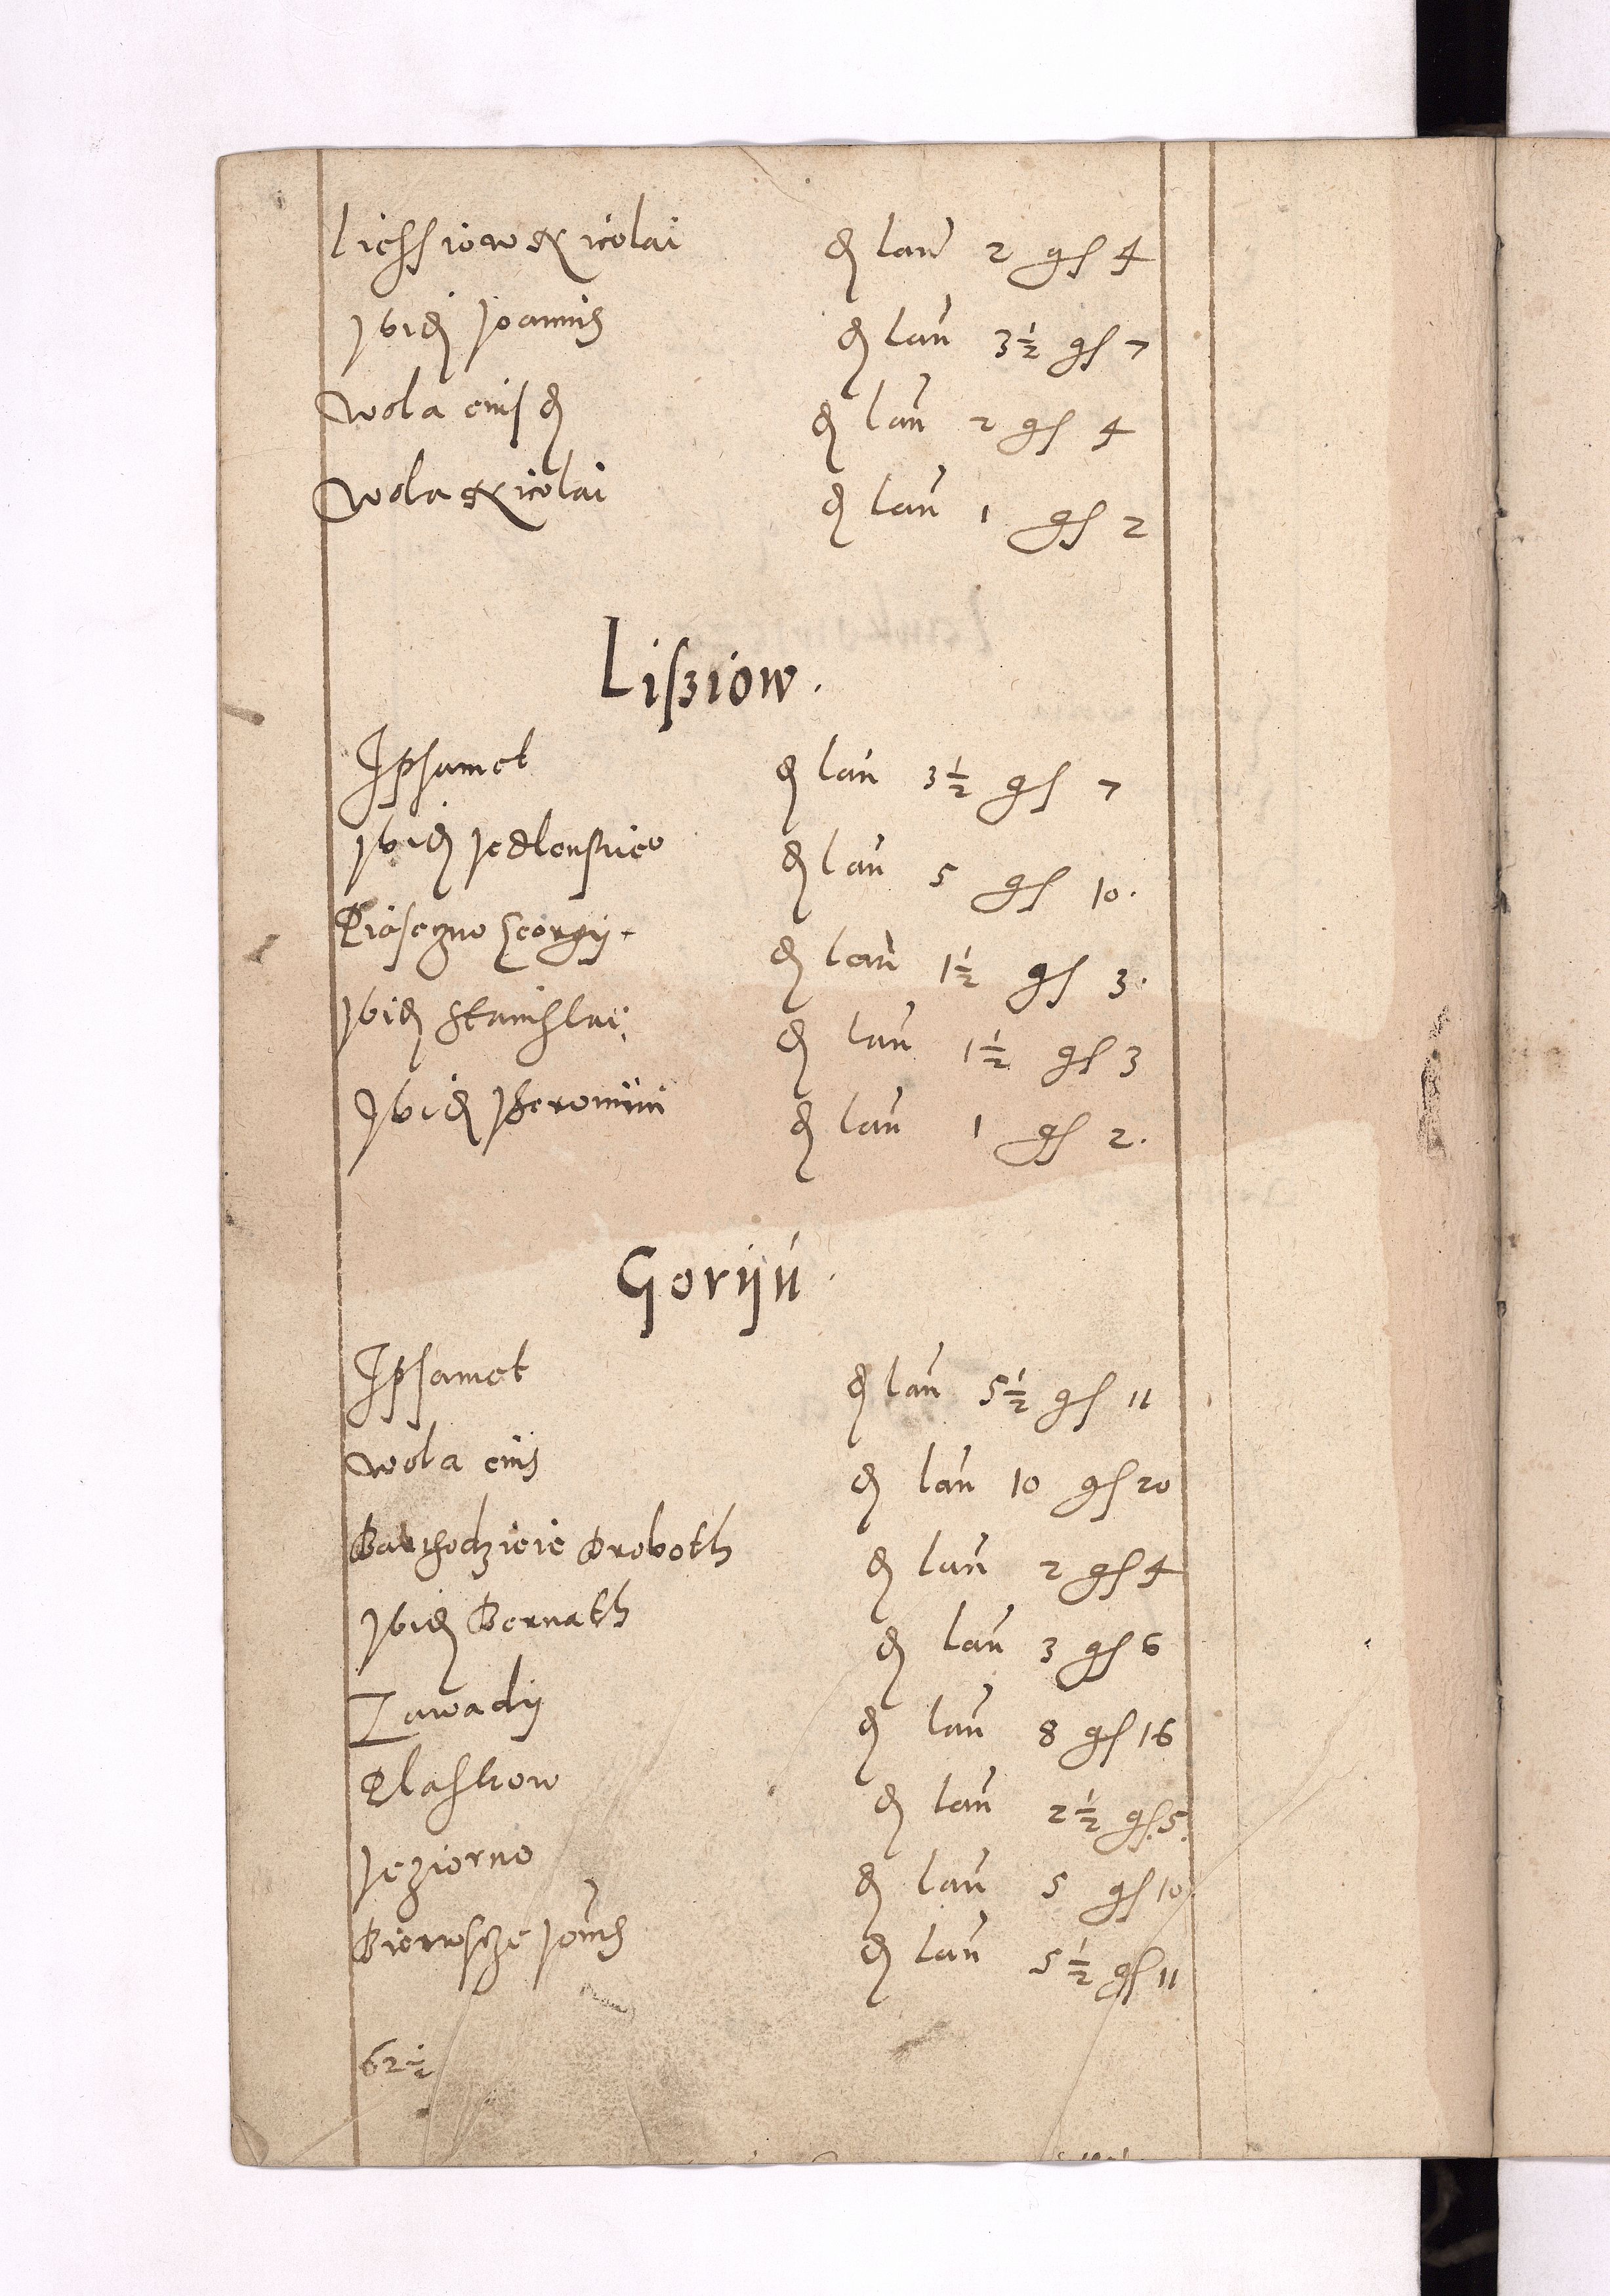 Liessiow Nicolai de lan 2 gs 4
Ibid Joannis de lan 3½ gs 7
Wola eiusd de lan 2 gs 4
Wola Nicolai de lan 1 gs 2
Lisziow.
Ipsamet de lan 3½ gs 7
Ibid Jedlenskieo de lan 5 gs 10.
Piaseczno Georgij de lan 1½ gs 3.
Ibid Stanislai de lan 1½ gs 3
Ibid Jheronimi de lan 1 gs 2.
Gorijn
Ipsamet de lan 5½ gs 11
Wola eius de lan 10 gs 20
Barthodzieie Droboth de lan 2 gs 4
Ibid Bernath de lan 3 gs 6
Zawadij de lan 8 gs 16
Płaskow de lan 2½ gs 5.
Jeziorno de lan 5 gs 10
Bierwsze Joannis de lan 5½ gs 11
62½